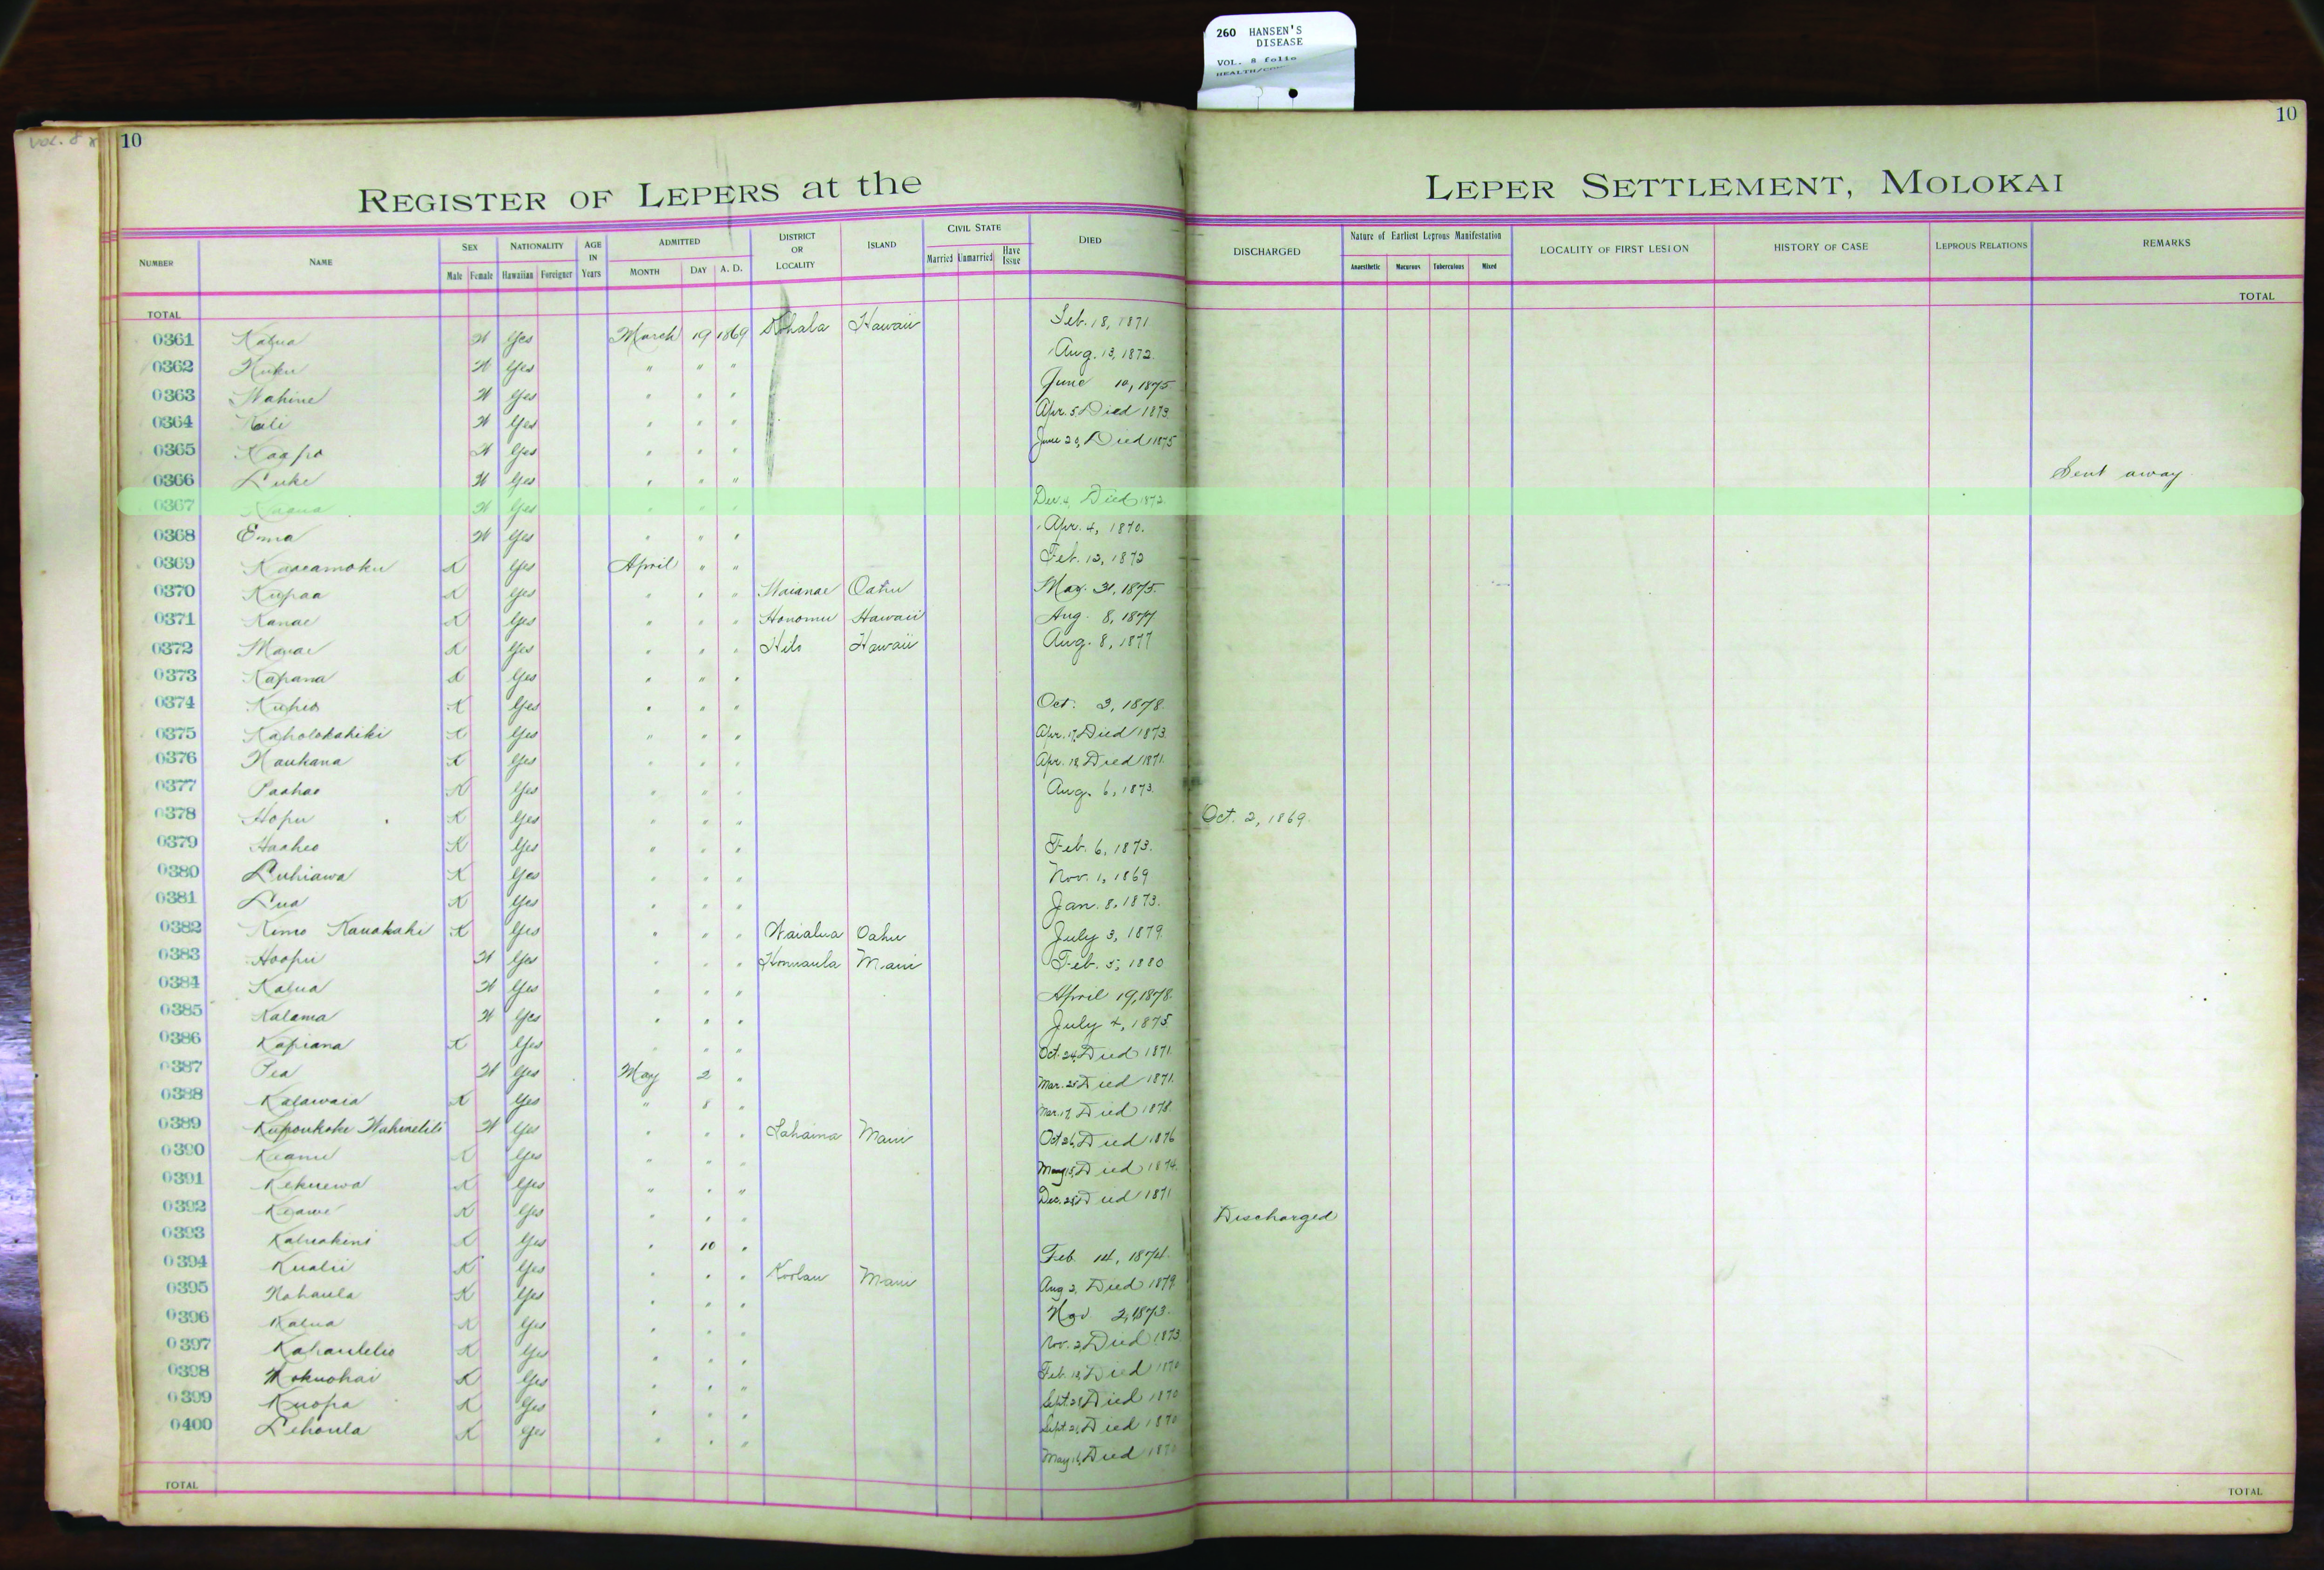 260 HANSEN'S
DISEASE
VOL. 8 folio
VOL. 8
10
10
REGISTER OF LEPERS at the LEPER SETTLEMENT, MOLOKAI
NUMBER NAME SEX Male Female NATIONALITY Hawaiian Foreigner AGE IN Years ADMITTED MONTH DAY A. D. DISTRICT OR LOCALITY ISLAND CIVIL STATE Married Unmarried Have Issue DIED DISCHARGED Nature of Earliest Leprous Manifestation Anaesthetic Macurous Tuberculous Mixed LOCALITY OF FIRST LESION HISTORY OF CASE LEPROUS RELATIONS REMARKS
TOTAL TOTAL
0361 Kalua W Yes March 19 1869 Kohala Hawaii Feb. 18, 1871
0362 W Yes " " " Aug. 13, 1872.
0363 Wahine W Yes " " " June 10, 1875
0364 Kali W Yes " " " Apr. 5 Died 1873.
0365 Kaapo W Yes " " " June 20, Died 1875
0366 Luke W Yes " " " Sent away
0367 W Yes " " " Died 1872.
0368 Emma W Yes " " " Apr. 4, 1870.
0369 K Yes April " " Feb. 12, 1872
0370 Kupaa K Yes " " " Waianae Oahu May. 31, 1875.
0371 Kanae K Yes " " " Honomu Hawaii Aug. 8, 1877
0372 K Yes " " " Hilo Hawaii Aug. 8, 1877
0373 Kapana K Yes " " "
0374 Kuheo K Yes " " " Oct. 3, 1878.
0375 Kaholokahiki K Yes " " " Apr. 17, Died 1873.
0376 Naukana K Yes " " " Apr. 18 Died 1871.
0377 Paahao K Yes " " " Aug. 6, 1873.
0378 Hopu K Yes " " " Oct. 2, 1869.
0379 Haaheo K Yes " " " Feb. 6, 1873.
0380 Luhiawa K Yes " " " Nov. 1, 1869
0381 Lua K Yes " " " Jan. 8, 1873.
0382 Kimo Kauakahi K Yes " " " Waialua Oahu July 3, 1879.
0383 Hoopii W Yes " " " Honuaula Maui Feb. 5, 1880
0384 Kalua W Yes " " " April 19, 1878.
0385 Kalama W Yes " " " July 4, 1875
0386 Kapiana K Yes " " " Oct. 24, Died 1871.
0387 Pea W Yes May 2 " Mar. 25 Died 1871.
0388 Kalawaia K Yes " 8 " Mar. 17, Died 1878.
0389 W Yes " " " Lahaina Maui Oct 26, Died 1876
0390 Keanu K Yes " " " May 15, Died 1874.
0391 Kekuewa K Yes " " " Dec. 28 Died 1871
0392 Keawe K Yes " " " Discharged
0393 Kaluakini K Yes " 10 " Feb. 14, 1874.
0394 Kualii K Yes " " " Koolau Maui Aug 3, Died 1879.
0395 Nahaula K Yes " " " Nov 2, 1873.
0396 Kalua K Yes " " " Nov. 2, Died 1873
0397 Kahaulelio K Yes " " " Feb. 18, Died 1870
0398 Mokuohai K Yes " " " Sept. 28 Died 1870
0399 Kuopa K Yes " " " Sept. 21, Died 1870
0400 Lehoula K Yes " " " May 16, Died 1870
TOTAL TOTAL